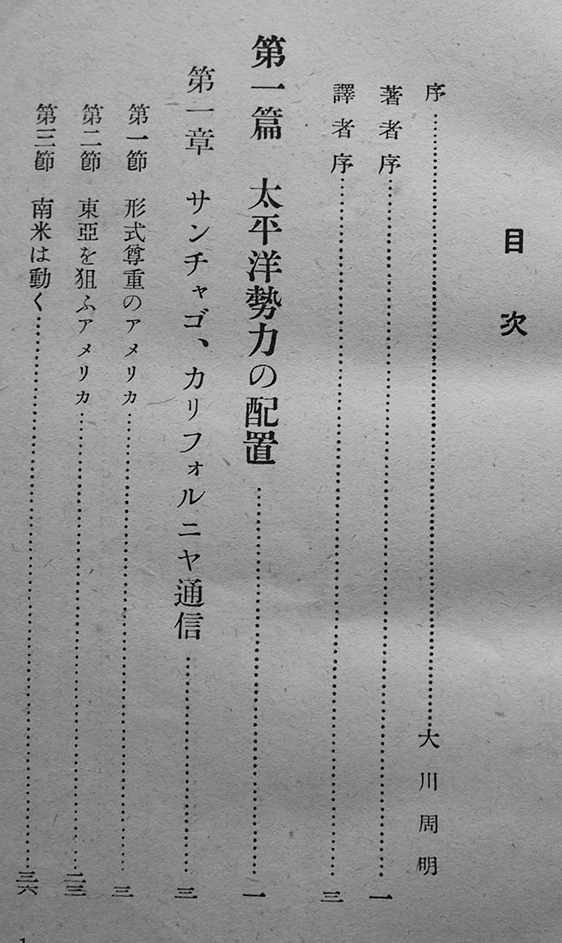 目次
序……大川周明
著者序……一
譯者序……三
第一篇 太平洋勢力の配置……一
第一章 サンチャゴ、カリフォルニヤ通信……三
第一節 形式尊重のアメリカ……三
第二節 東亞を狙ふアメリカ……二三
第三節 南米は動く……三六
1